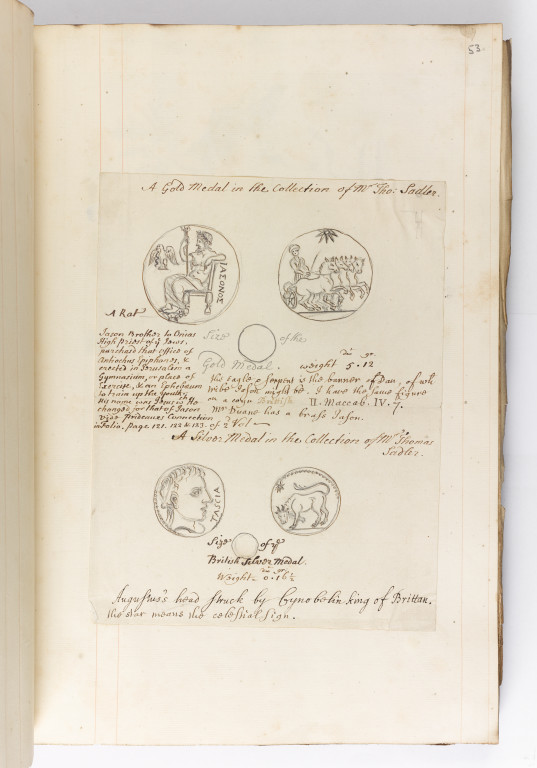 53.
A Gold Medal in the Collection of Mr. Tho: Sadler.
ΙΑΣΟΝΟΣ
A Rat
Jason Brother to Onias
High Priest of ye Jews,
purchas'd that office of
Antiochus Epiphanes, &
erected in Jerusalem a
Gymnasium, or place of
Exercise, & an Ephebeum
to train up the youth;
his name was Jesus; He
changed for that of Jason
vide Prideaux Connection
in Folio, page 121. 122 & 123. of 2 Vol
Size of the
Gold Medal. weight 5.12
the Eagle & Serpent is the banner of Dan, of wh
tribe Jason might be. I have the same figure
on a coin British II. Maccab. IV. 7.
Mr. Duane has a brass Jason.
A Silver Medal in the Collection of Mr. Thomas
Sadler.
TASCIA
Size of ye
British Silver Medal.
Weight: 0.16½
Augustus's head struck by Cynobelin king of Brittan.
the star means the celestial sign.